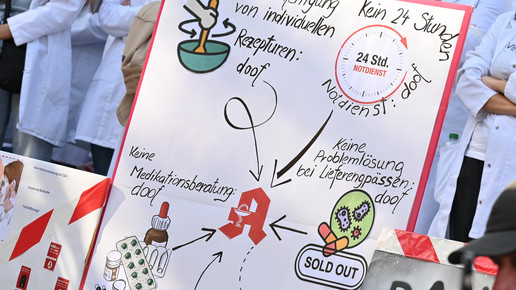 von individuellen
Rezepturen:
doof
Kein 24 Stunden
24 Std.
NOTDIENST
Notdienst: doof
Keine
Medikationsberatung:
doof
Keine
Problemlösung
bei Lieferengpässen:
doof
SOLD OUT